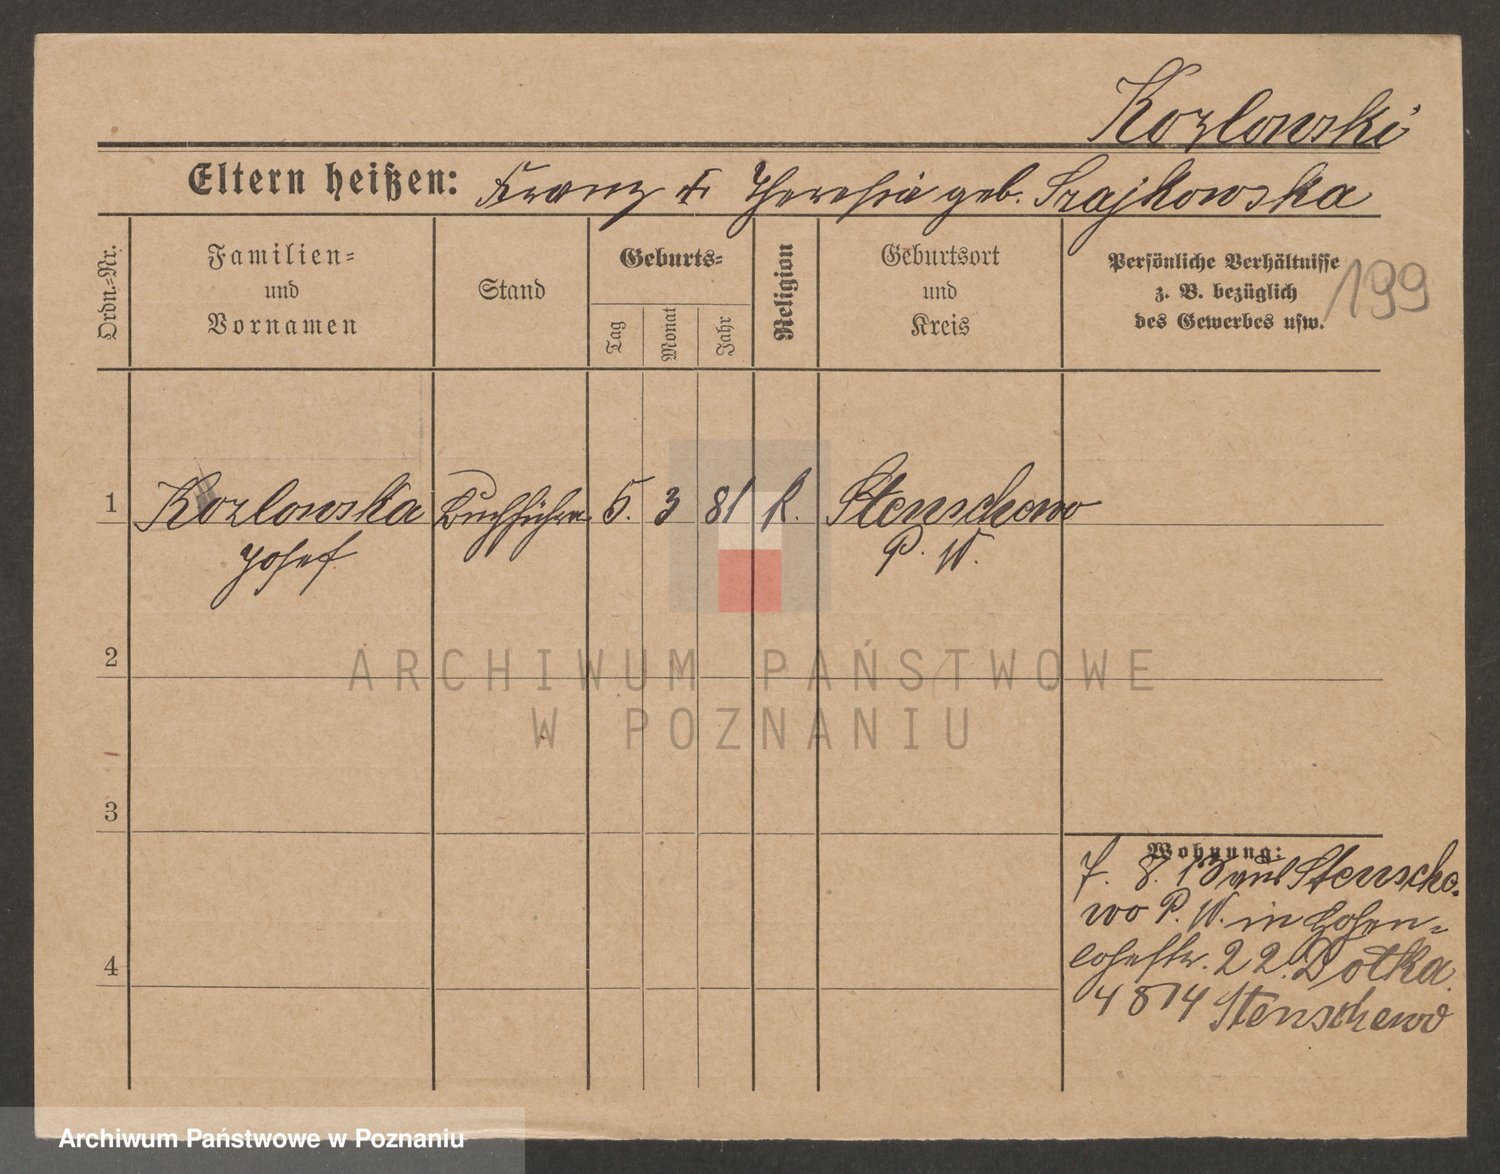 Kozlowski
Eltern heißen: Franz & Theresia geb. Szajkowska
Ordn.-Nr.
Familien-
und
Vornamen
Stand
Geburts-
Tag
Monat
Jahr
Religion
Geburtsort
und
Kreis
Persönliche Verhältnisse
z. B. bezüglich
des Gewerbes usw.
199
1 Kozlowska Buchführer 5. 3 81 k. Stenschewo
Josef P. W.
2
ARCHIWUM PAŃSTWOWE
W POZNANIU
3
Wohnung:
7. 8. 13 aus Stensche-
wo P. W. in Hohen-
lohestr. 22. Dotka.
4
4 8 14 Stenschewo
Archiwum Państwowe w Poznaniu